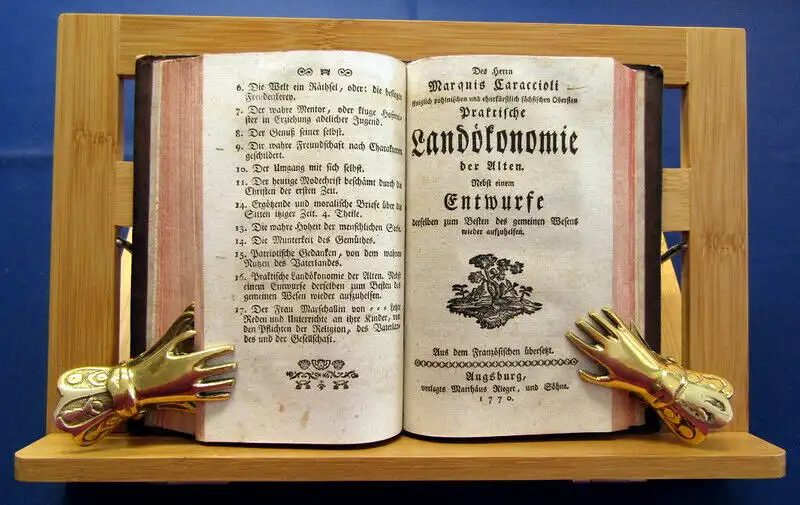 6. Die Welt ein Räthsel, oder: die besiegte
Freudenkerey.
7. Der wahre Mentor, oder kluge Hofmei-
ster in Erziehung adelicher Jugend.
8. Der Genuß seiner selbst.
9. Die wahre Freundschaft nach Charakteren
geschildert.
10. Der Umgang mit sich selbst.
11. Der heutige Modechrist beschämt durch die
Christen der ersten Zeit.
14. Ergötzende und moralische Briefe über die
Sitten itziger Zeit. 4. Theile.
13. Die wahre Hoheit der menschlichen Seele.
14. Die Munterkeit des Gemüthes.
15. Patriotische Gedanken, von dem wahren
Nutzen des Vaterlandes.
16. Praktische Landökonomie der Alten. Nebst
einem Entwurfe derselben zum Besten des
gemeinen Wesen wieder aufzuhelfen.
17. Der Frau Marschallin von - - - letzte
Reden und Unterrichte an ihre Kinder, von
den Pflichten der Religion, des Vaterlan-
des und der Gesellschaft.
Des Herrn
Marquis Caraccioli
Königlich pohlnischen und churfürstlich sächsischen Obersten
Praktische
Landökonomie
der Alten.
Nebst einem
Entwurfe
derselben zum Besten des gemeinen Wesens
wieder aufzuhelfen.
Aus dem Französischen übersetzt.
Augsburg,
verlegts Matthäus Rieger, und Söhne.
1770.